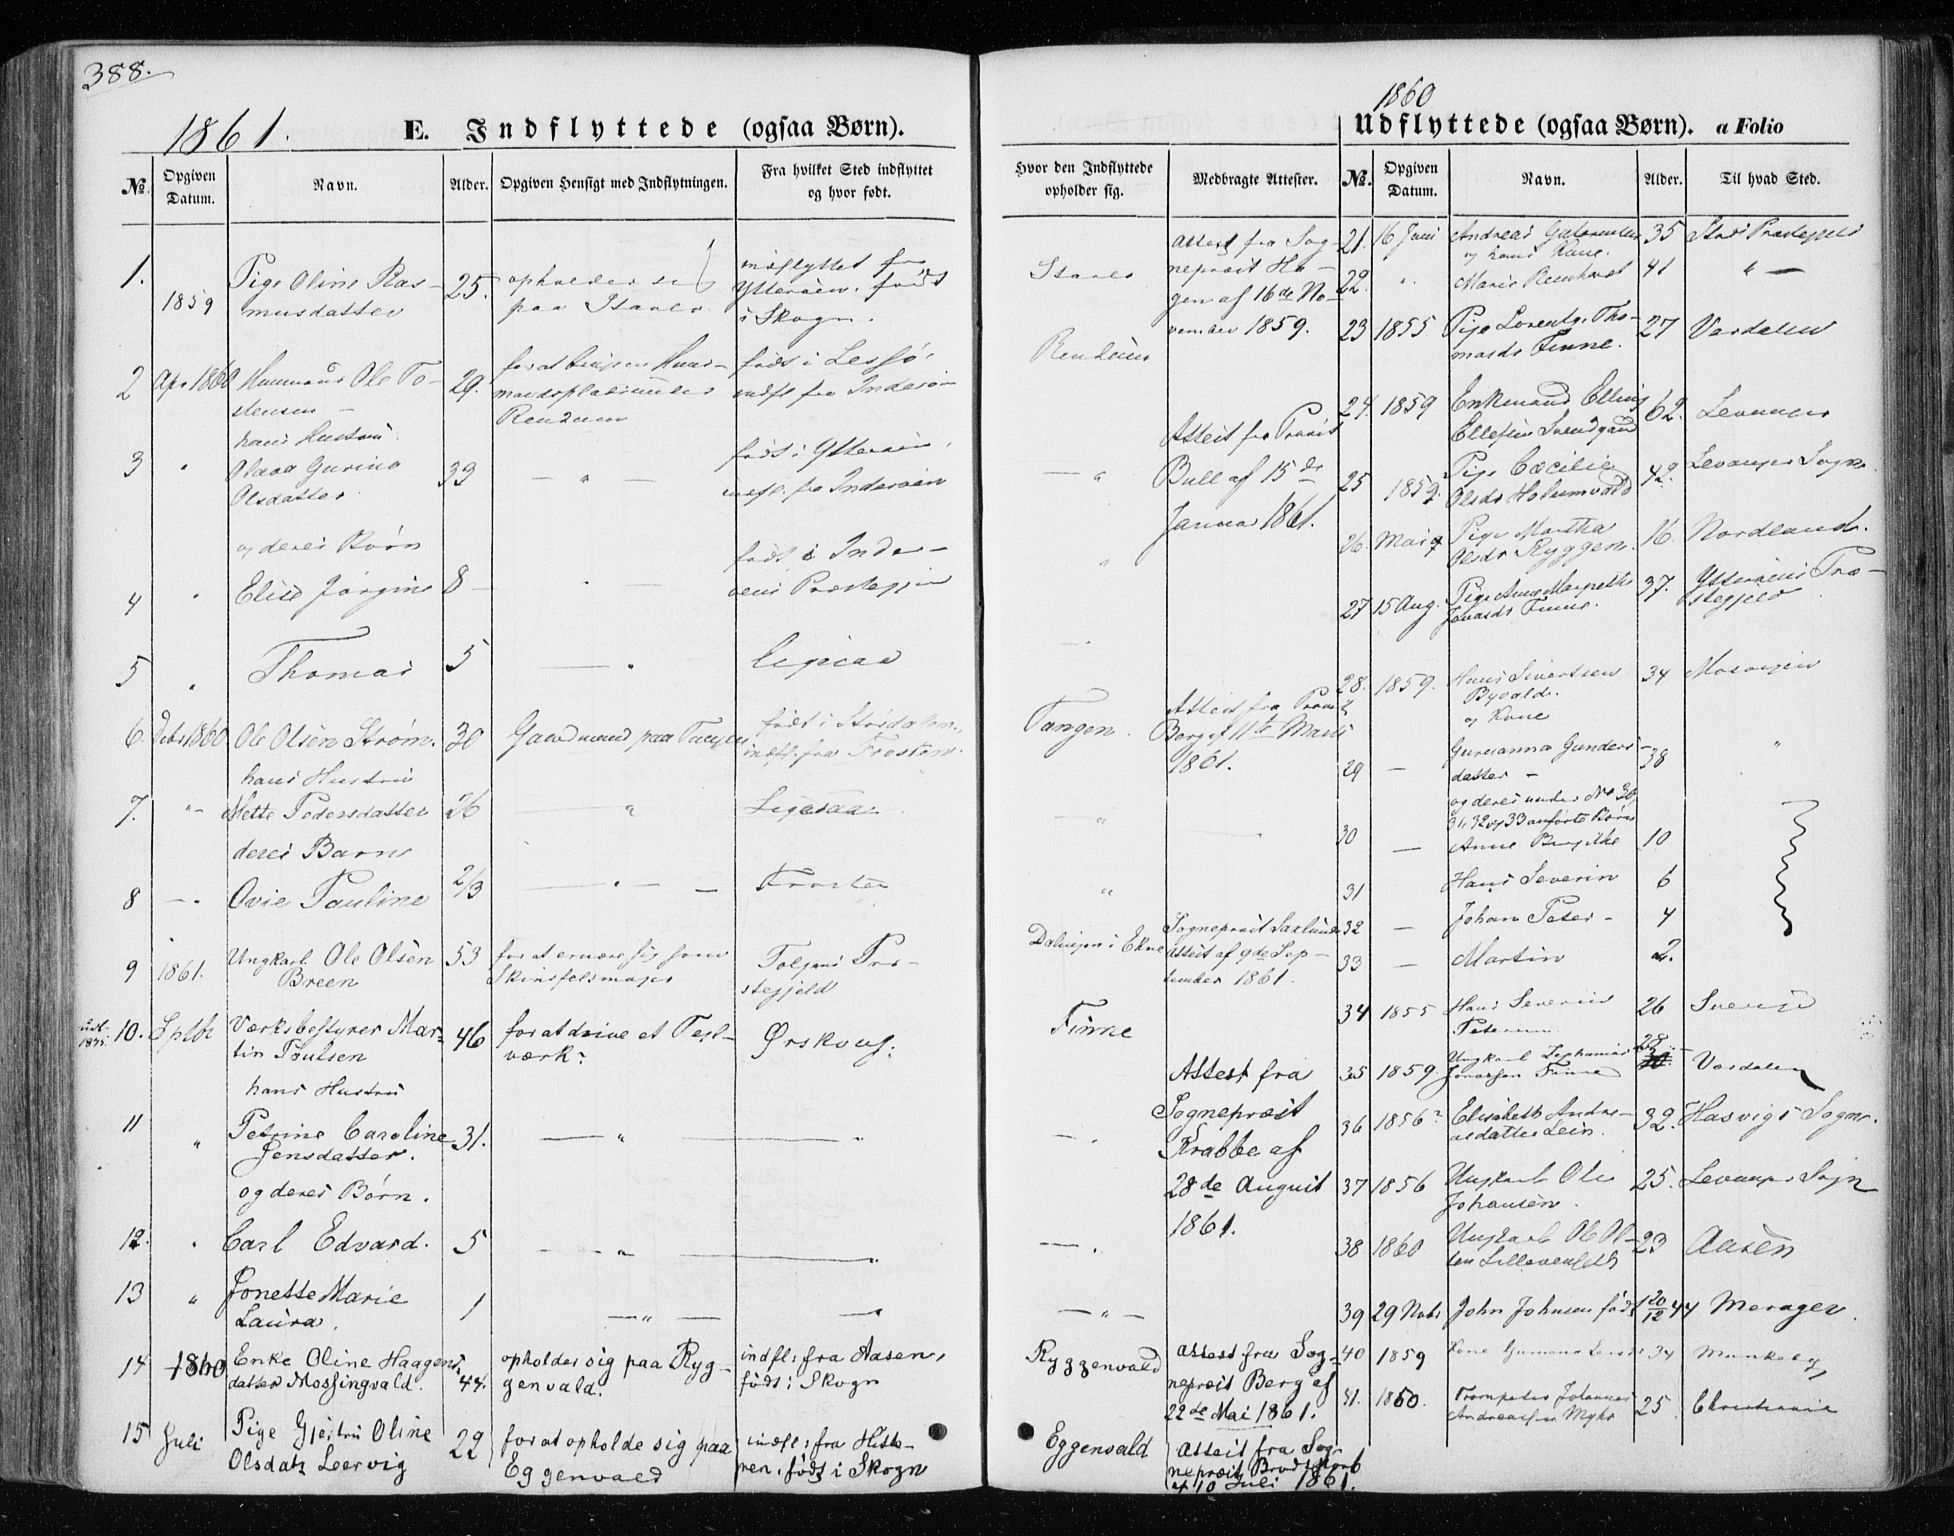 388.
1861.
E. Indflyttede (ogsaa Børn).
№. Opgiven Datum. Navn. Alder. Opgiven Hensigt med Indflytningen. Fra hvilket Sted indflyttet og hvor født.
1. 1859 Pige Oline Rasmusdatter 25. opholder sig paa indflyttet fra Ytterøen. født i Skogn.
2 Apr 1860 Ole Tostensen 29. født i indfl fra Inderøen
hans Hustru
3 " Gurine Olsdatter 33 — " — født i Ytterøen, indfl. fra Inderøen
og deres Børn
4 " Elise Jørgine 8 — " — født i Inderøens Præstegjeld
5 " Thomas 5 — " ligesaa
6. 1860 Ole Olsen Strøm. 30 Gaardmand paa Tangen født i Størdalen, indfl. fra Frosten.
hans Hustru
7. " Mette Pedersdatter 26 — " Ligesaa
deres Barn
8 — " Ovie Pauline 2/3 — " — Frosten
9 1861. Ungkarl Ole Olsen Breen 53 for at ernære sig som Skindfelsmager Tolgens Præstegjeld
10. Sptbr Værksbestyrer Martin Poulsen 46 for at drive et Teglværk. Ørskoug.
hans Hustru
11 " Petrine Caroline Jensdatter. 31. — " — "
og deres Børn.
12. " Carl Edvard. 5 — " — "
13 " Jonette Marie Laura. 1 — " — "
14 1860 Enke Oline Haagensdatter Mossingvald. 44. opholder sig paa Ryggenvald. indfl: fra Aasen, født i Skogn
15 Juli Pige Gjertru Oline Olsdatr Leervig 22 for at opholde sig paa Eggenvald indfl: fra Hitteren, født i Skogn
Hvor den Indflyttede opholder sig. Medbragte Attester.
Attest fra Sogneprest Hagen af 16de November 1859.
— " Attest fra Provst Bull af 15de Januar 1861.
Tangen. Attest fra Provst Berg af 11te Marts 1861.
i Ekne Sogneprest Attest af 9de September 1861.
Finne Attest fra Sogneprest Krabbe af 28de August 1861.
Ryggenvald Attest fra Sogneprest Berg af 22de Mai 1861.
Eggenvald Attest fra Sogneprest af 10 Juli 1861.
1860
Udflyttede (ogsaa Børn). a Folio
№. Opgiven Datum. Navn. Alder. Til hvad Sted.
21. 16 Juni Andreas 35
og hans Kone.
22. " Marie 41 " —
23 1855 Pige Thomasdr Finne. 27 Verdalen
24. 1859 Enkemand Elling Ellefsen 62. Levanger
25 1859. Pige Cæcilie Olsdr 42. Levanger Sogn
26. Mai Pige Martha Olsdr Ryggen. 16. Nordland.
27 15 Aug. Pige Anne Margrethe Jonasdr Finne. 37. Ytterøens Præstegjeld
28. 1859. Hans Sivertsen Byvald. 34
og Kone
29 — Gurianna Gundersdatter — 38 "
og deres under No 30, 31, 32 og 33 anførte Børn
30 — Anne 10
31 Hans Severin 6
32 — Johan Peter — 4
33 — Martin 2.
34 1855 Hans Severin 26 Sverige
35 1859. Ungkarl Jonassen Finne 28 Verdalen
36 1856 Elisabeth Andreasdatter Lein. 32. Hasvigs Sogn.
37 1856 Ungkarl Ole Johansen. 25. Levanger Sogn
38 1860 Ungkarl Ole Olsen 23 Aasen
39 29 Nobr John Johnsen født 20/12 44 Merager
40 1859 Kone 34
41. 1860. Johannes Andreassen Myhr 25. Christiania